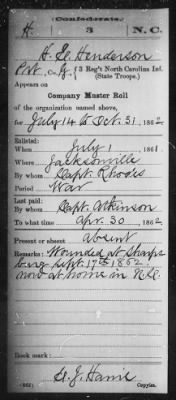 Confederate.
H 3 N.C.
H. E. Henderson
Pvt, Co. H, 3 Reg't North Carolina Inf.
(State Troops.)
Appears on
Company Muster Roll
of the organization named above,
for July 14 to Oct. 31, 1862
Enlisted:
When July 1 1861.
Where Jacksonville
By whom Capt. Rhodes
Period War
Last paid:
By whom Capt. Atkinson
To what time Apr. 30 1862.
Present or absent absent
Remarks: Wounded at Sharps
burg Sept. 17th 1862.
now at home in N.C.
Book mark:
Copyist.